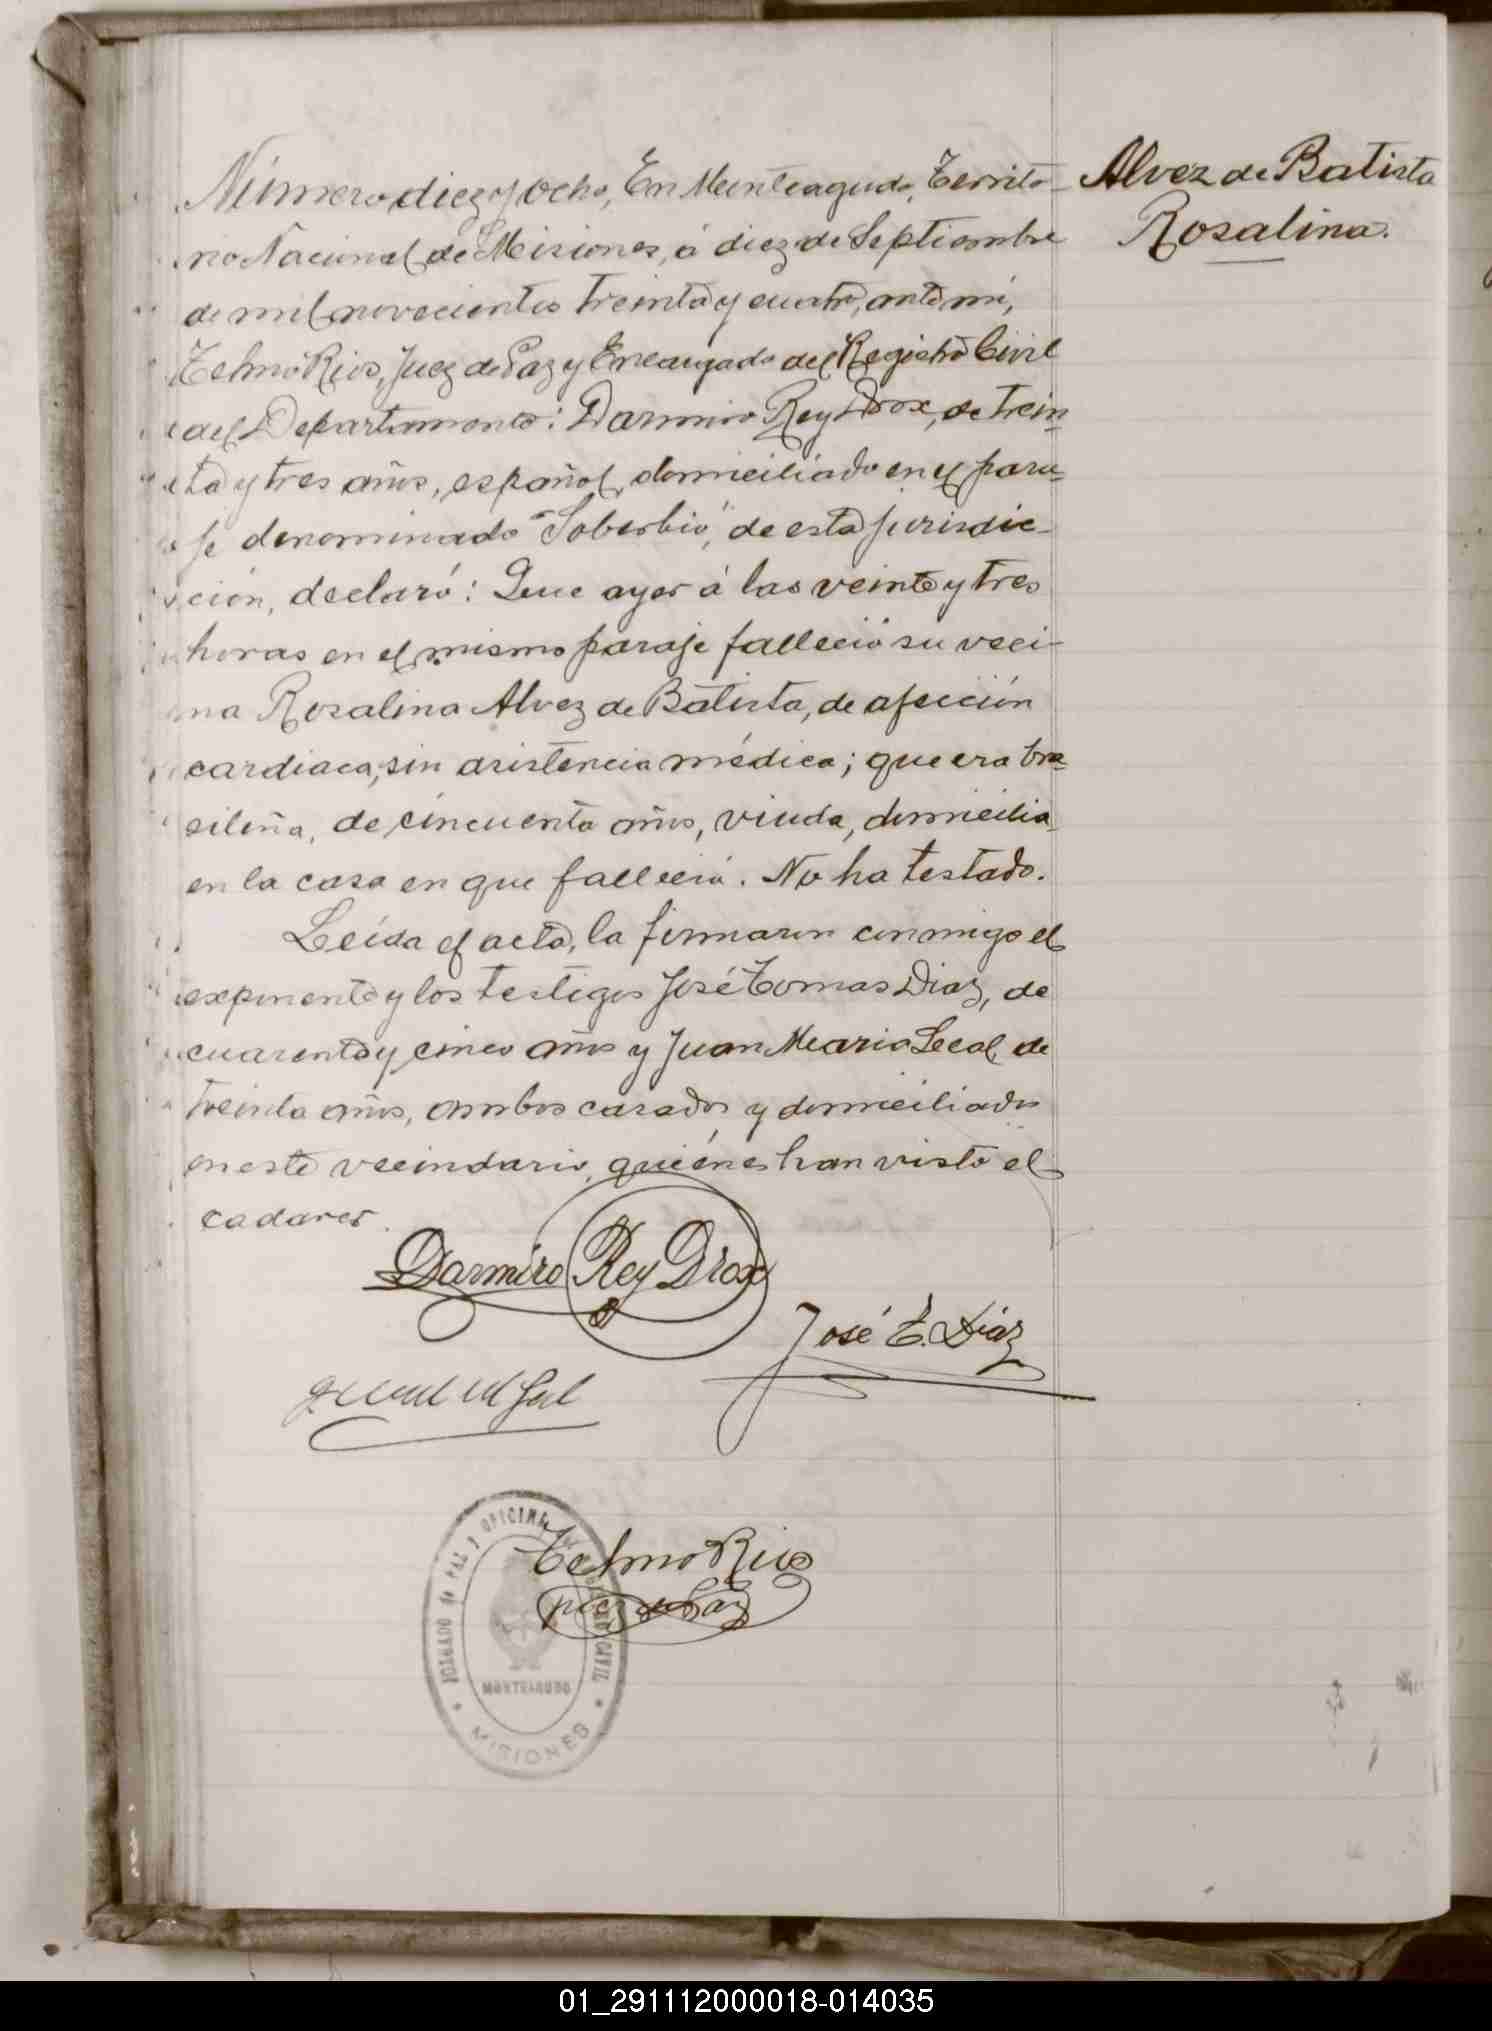 Número diez y ocho, En Monteagudo, Territo-
rio Nacional de Misiones, á diez de Septiembre
de mil novecientos treinta y cuatro, ante mí,
Telmo Rios, Juez de Paz y Encargado del Registro Civil
del Departamento: Darmiro Rey Drox, de trein-
ta y tres años, español, domiciliado en el para-
je denominado "Soberbio", de esta jurisdic-
ción, declaró: Que ayer á las veinte y tres
horas en el mismo paraje falleció su veci-
na Rosalina Alvez de Batista, de afección
cardiaca, sin asistencia médica; que era bra-
sileña, de cincuenta años, viuda, domicilia
en la casa en que falleció. No ha testado.
Leída el acta, la firmaron conmigo el
exponente y los testigos José Tomas Diaz, de
cuarenta y cinco años y Juan Maria Leal, de
treinta años, ambos casados y domiciliados
en este vecindario, quiénes han visto el
cadaver.
Alvez de Batista
Rosalina.
Darmiro Rey Drox
José T. Díaz
Telmo Rios
Juez de Paz
JUZGADO DE PAZ Y OFICINA DE REGISTRO CIVIL
MONTEAGUDO
MISIONES
01_291112000018-014035